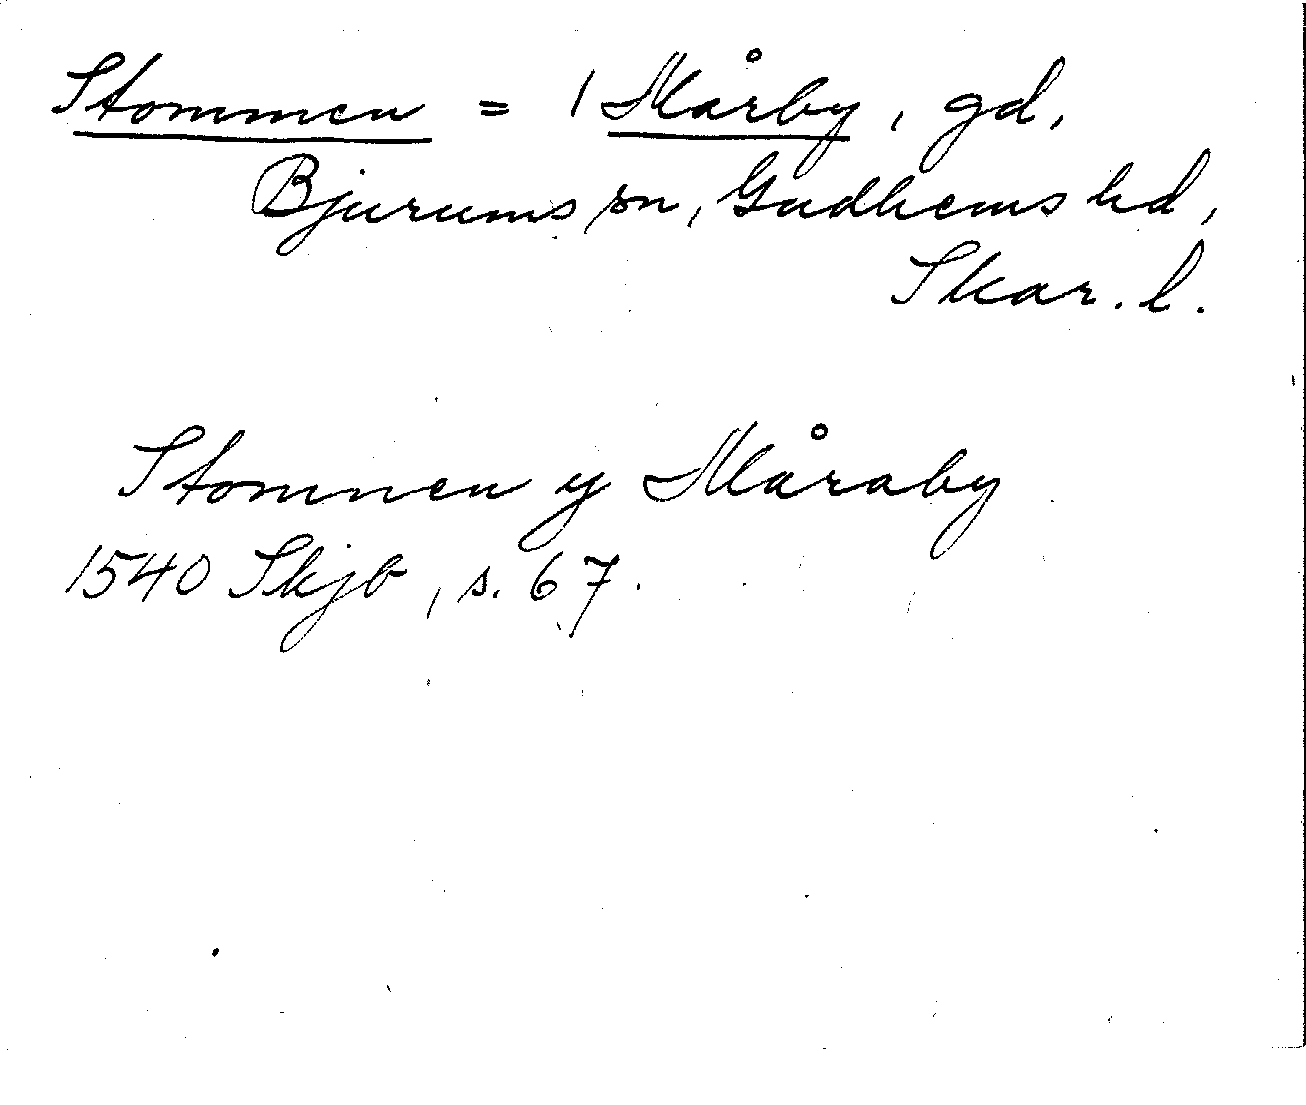 Stommen = 1 Mårby, gd,
Bjurums sn, Gudhems hd,
Skar. l.
Stomnen y Måraby
1540 Skjb, s. 67.